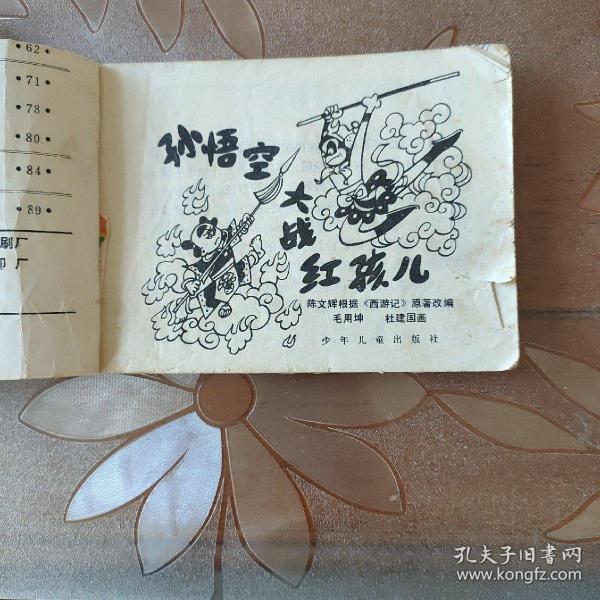 • 62 •
• 71 •
• 78 •
• 80 •
• 84 •
• 89 •
刷厂
印厂
孙悟空
大战
红孩儿
陈文辉根据《西游记》原著改编
毛用坤 杜建国画
少年儿童出版社
孔夫子旧书网
www.kongfz.com